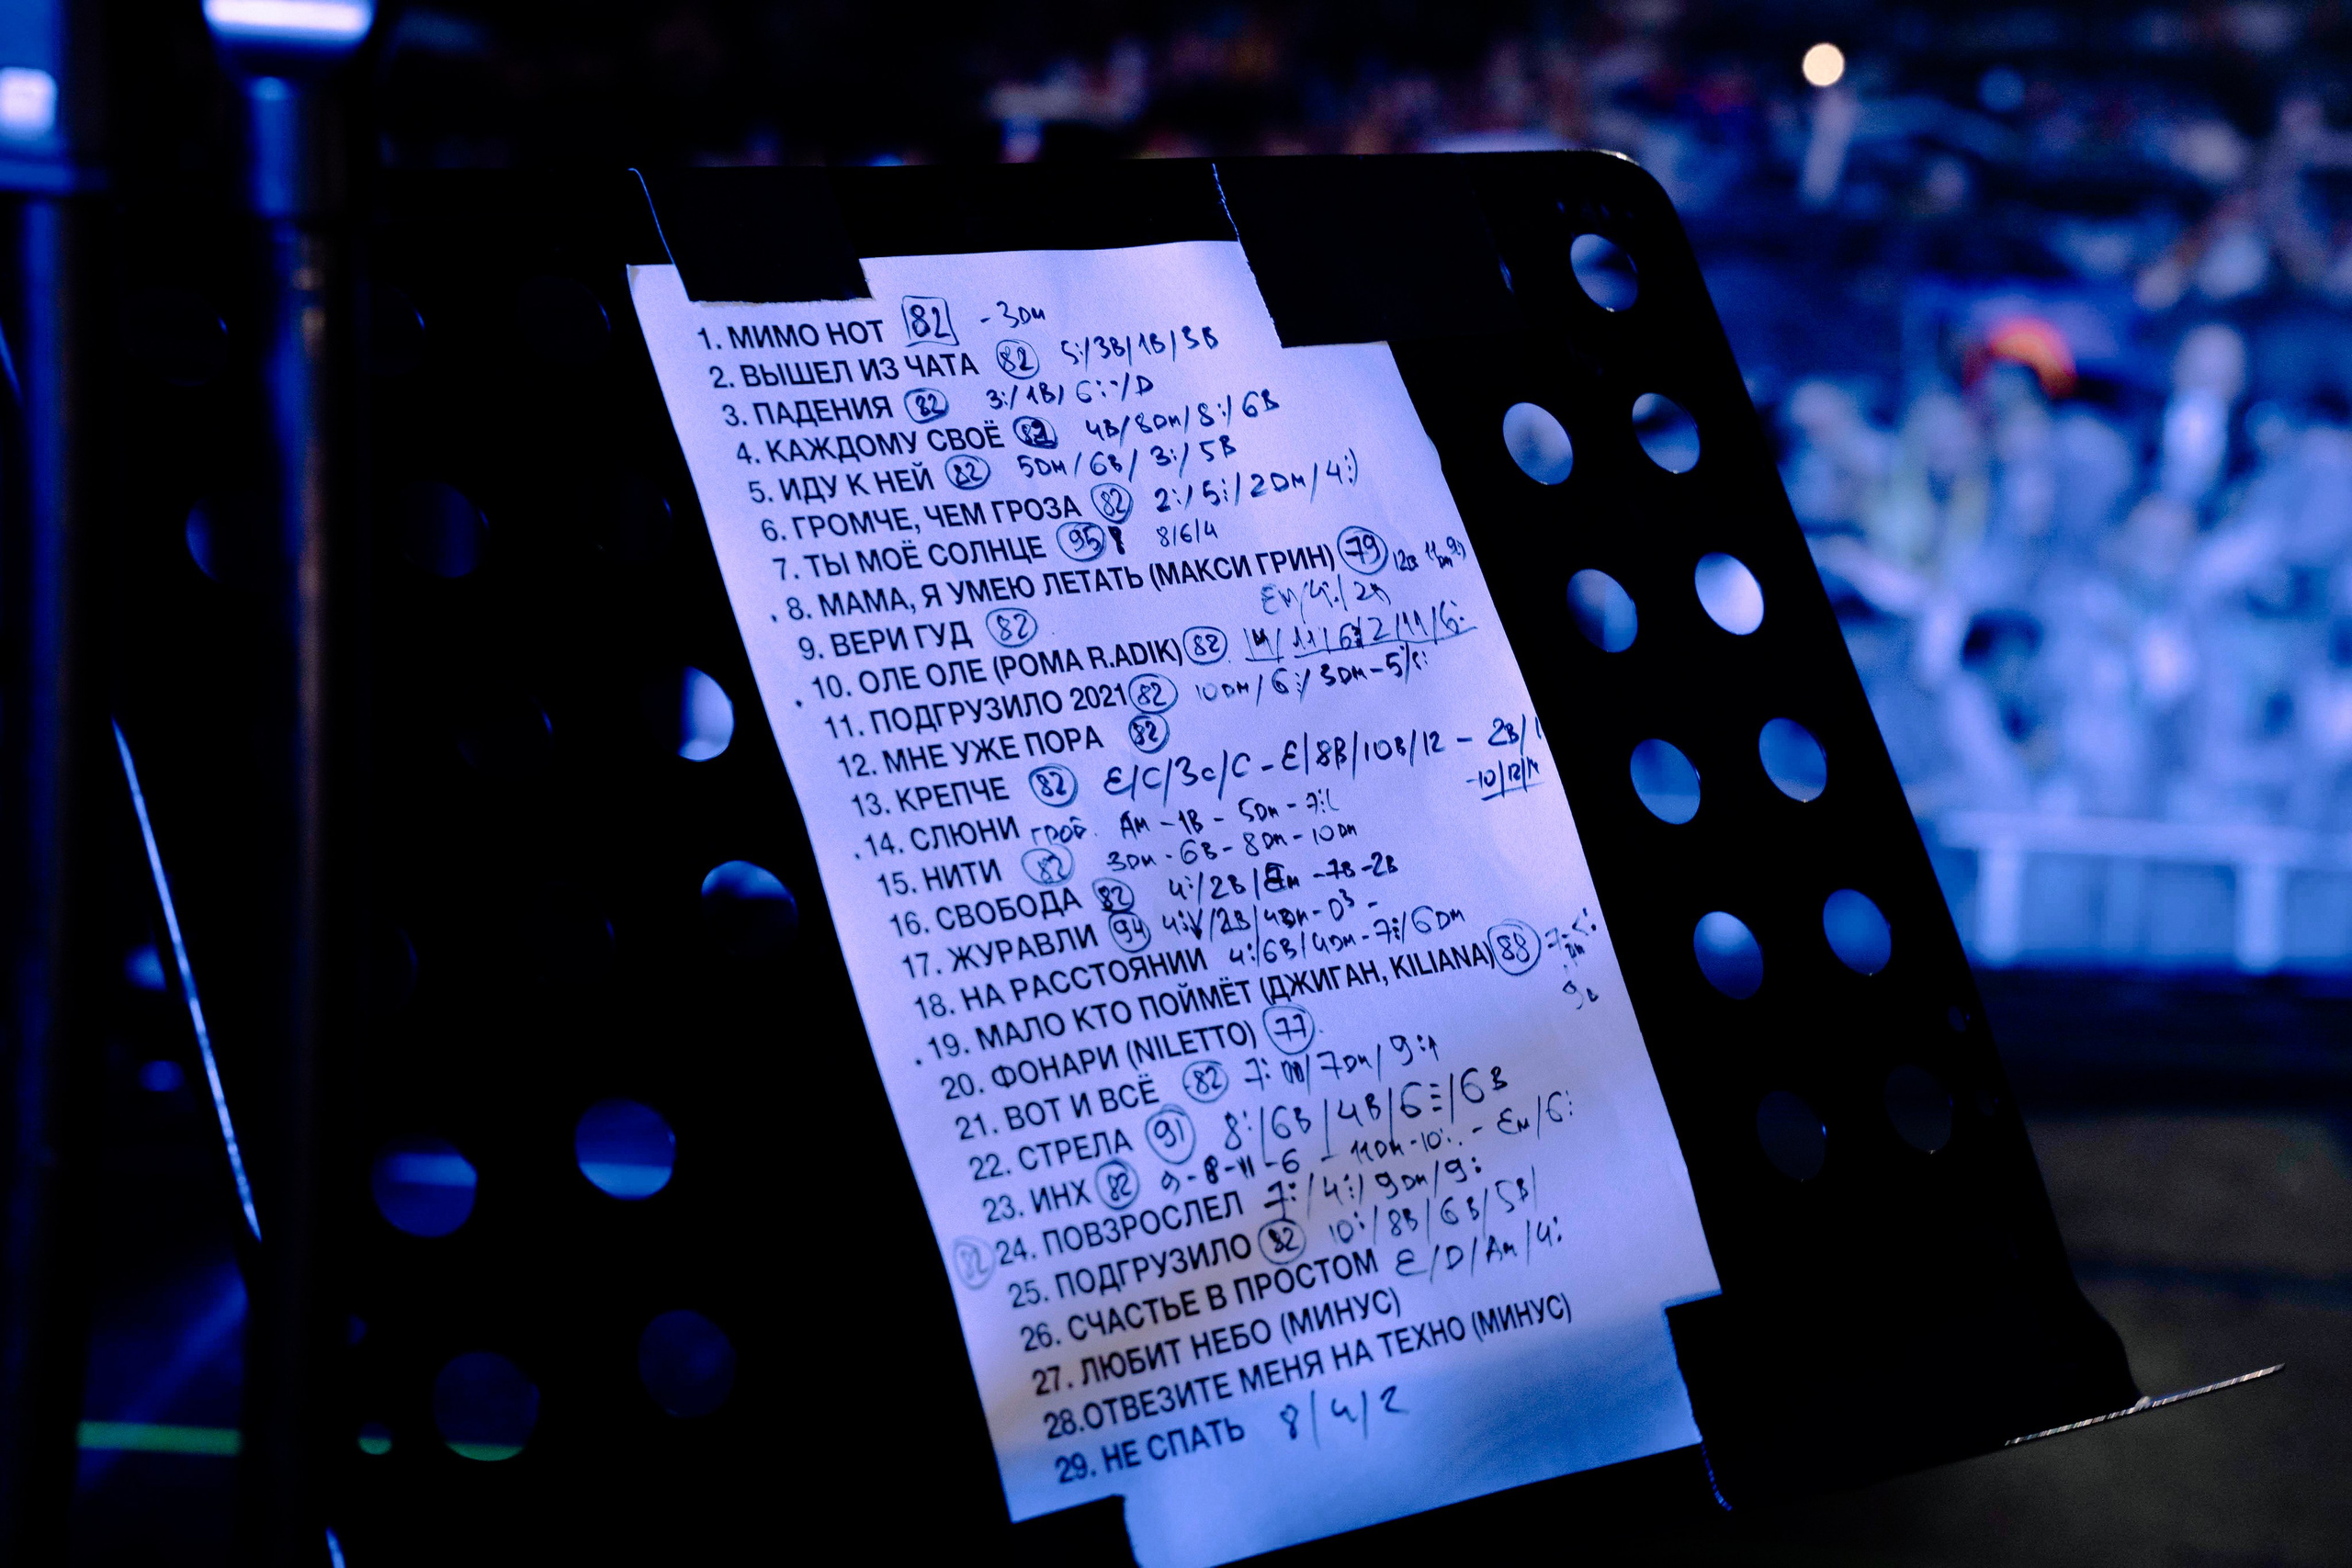 1. МИМО НОТ 82 - 3Dm
2. ВЫШЕЛ ИЗ ЧАТА 82 5:/3B/1B/3B
3. ПАДЕНИЯ 82 3:/1B/6:-/D
4. КАЖДОМУ СВОЁ 82 4B/8Dm/8:/6B
5. ИДУ К НЕЙ 82 5Dm/6B/3:/5B
6. ГРОМЧЕ, ЧЕМ ГРОЗА 82 2:/5:/2Dm/4:)
7. ТЫ МОЁ СОЛНЦЕ 95 8/6/4
. 8. МАМА, Я УМЕЮ ЛЕТАТЬ (МАКСИ ГРИН) 79
9. ВЕРИ ГУД 82
. 10. ОЛЕ ОЛЕ (РОМА R.ADIK) 82
11. ПОДГРУЗИЛО 2021 82 10Dm/6:/3Dm-5/
12. МНЕ УЖЕ ПОРА 82
13. КРЕПЧЕ 82 E/C/3c/C-E/8B/10B/12 - 2B/
-10/12/
. 14. СЛЮНИ Am-1B-5Dm-7:
15. НИТИ 82 3Dm-6B-8Dm-10Dm
16. СВОБОДА 82 4:/2B/Em-7B-2B
17. ЖУРАВЛИ 94
18. НА РАССТОЯНИИ 4:/6B/4Dm-7:/6Dm
. 19. МАЛО КТО ПОЙМЁТ (ДЖИГАН, KILIANA) 88
20. ФОНАРИ (NILETTO) 77
21. ВОТ И ВСЁ 82 7: /7Dm/9:
22. СТРЕЛА 91 8:/6B/4B/6:/6B
23. ИНХ 82 9-8-11-6 - 11Dm-10:. - Em/6:
82 24. ПОВЗРОСЛЕЛ 7:/4:/9Dm/9:
25. ПОДГРУЗИЛО 82 10:/8B/6B/5B/
26. СЧАСТЬЕ В ПРОСТОМ E/D/Am/4:
27. ЛЮБИТ НЕБО (МИНУС)
28.ОТВЕЗИТЕ МЕНЯ НА ТЕХНО (МИНУС)
29. НЕ СПАТЬ 8/4/2